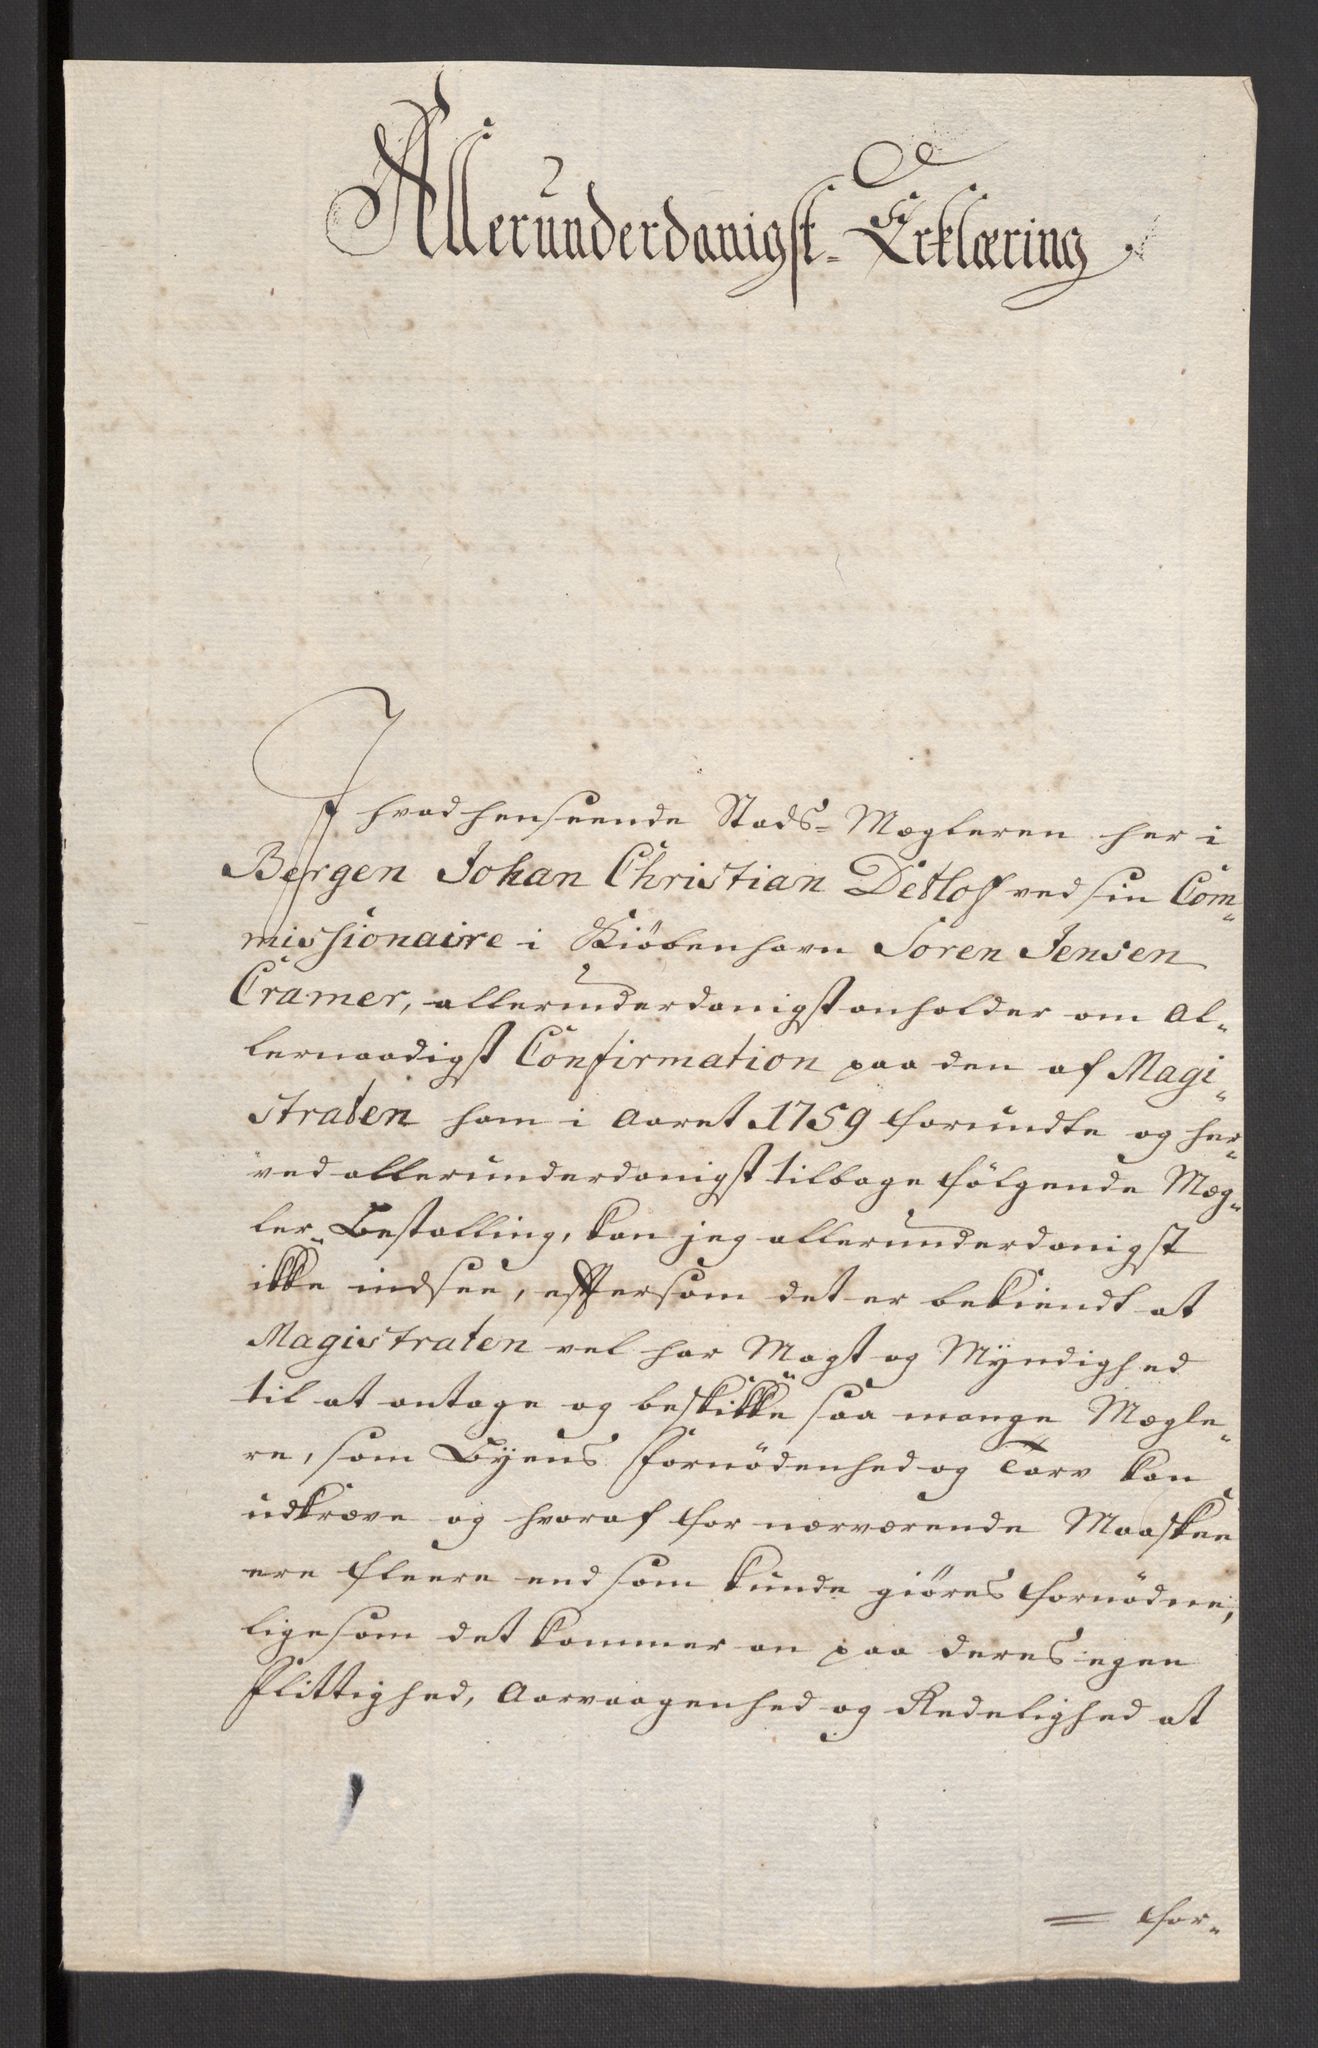 Allerunderdanigst Erklæring
I hvad henseende Stads-Mægleren her i
Bergen Johan Christian Detlof ved sin Com-
missionaire i Kiöbenhavn Soren Jensen
Cramer, allerunderdanigst anholder om Al-
lernaadigst Confirmation paa den af Magi-
straten ham i Aaret 1759 forundte og her-
ved allerunderdanigst tilbage fölgende Mæg-
ler-Bestalling, kan jeg allerunderdanigst
ikke indsee, eftersom det er bekiendt at
Magistraten vel har Magt og Myndighed
til at antage og beskikke saa mange Mægle-
re, som Byens Fornödenhed og Tarv kan
udkræve og hvoraf for nærværende Maaskee
ere fleere end som kunde giöres fornödne,
ligesom det kommer an paa deres egen
Flittighed, Aarvaagenhed og Redelighed at
= for-